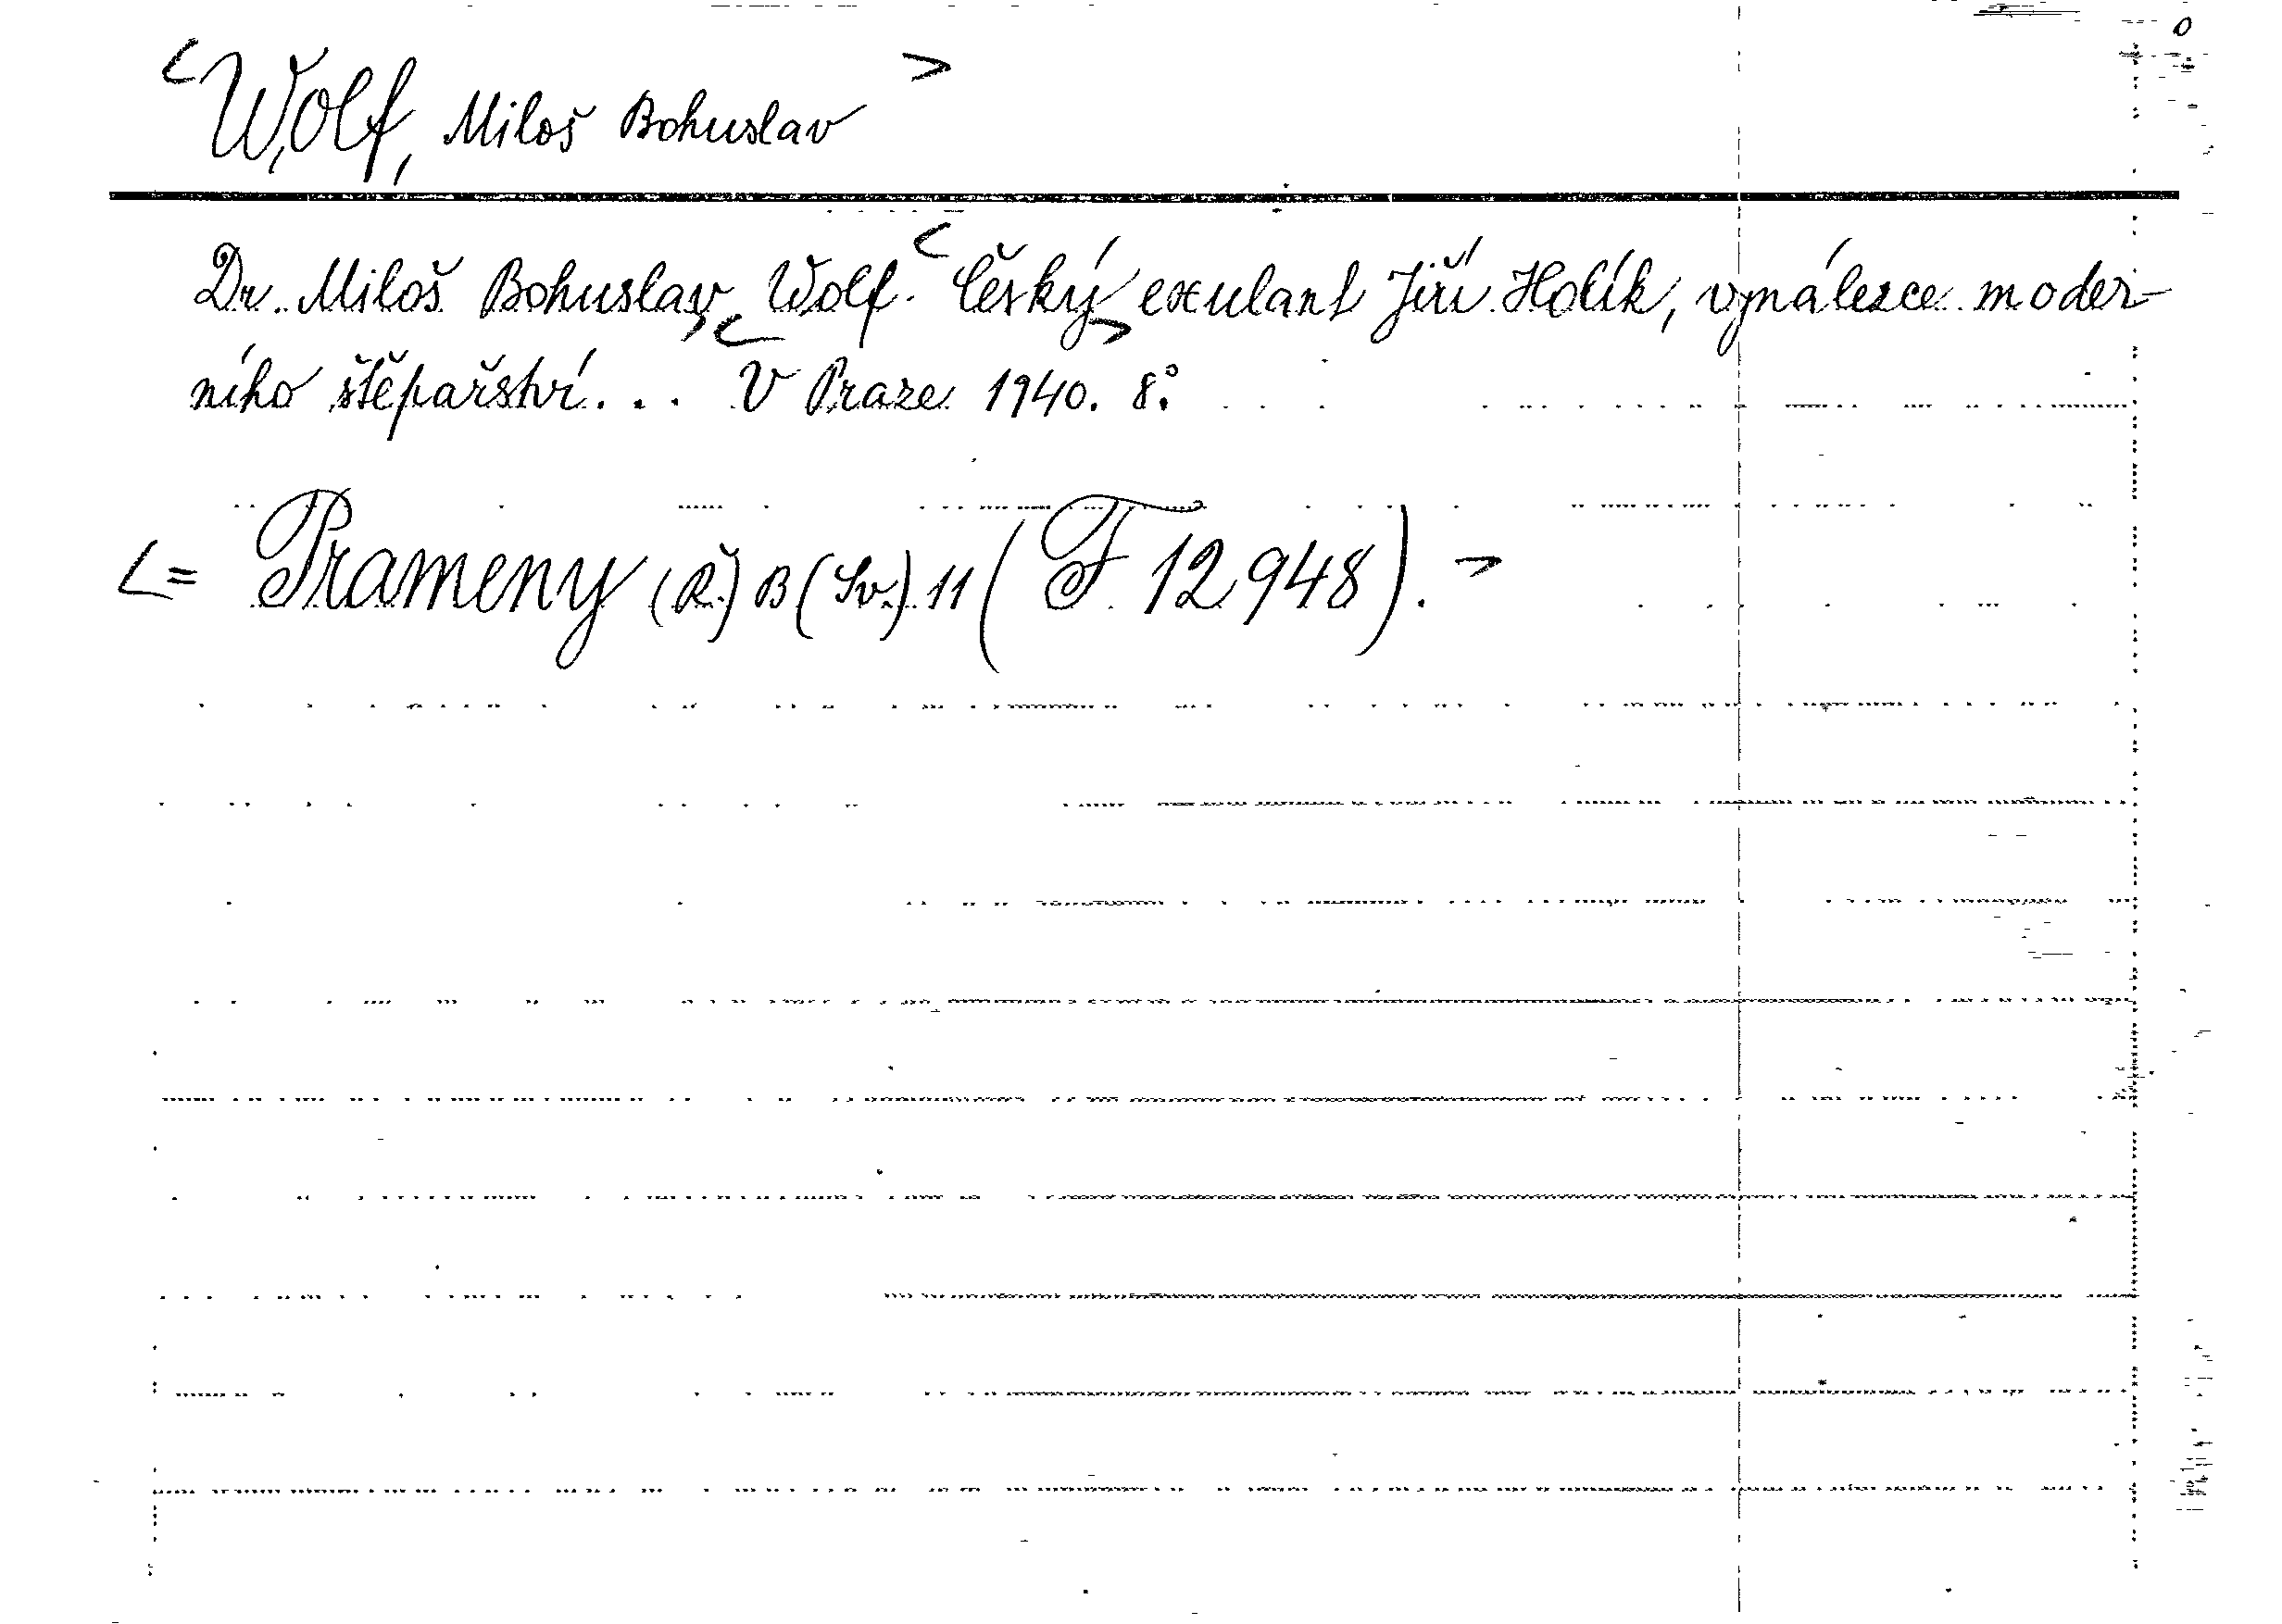 <Wolf, Miloš Bohuslav>
Dr. Miloš Bohuslav Wolf. Český exulant Jiří Holík, vynálezce moder-
ního štěpařství... V Praze 1940. 8°.
<= Prameny (Ř.) B (Sv.) 11 (F 12948). >